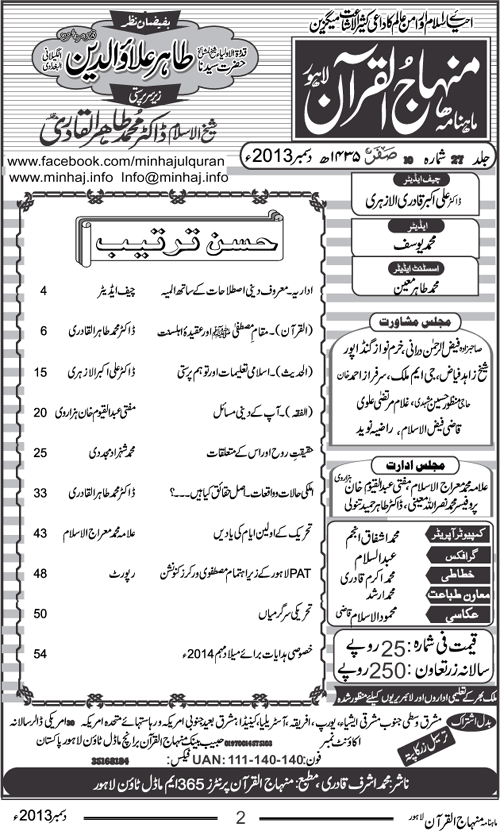 احیائے اسلام و امن عالم کا داعی کثیر الاشاعت میگزین
ماہنامہ منہاج القرآن لاہور
بفیضان نظر
قدوۃ الاولیاء شیخ المشائخ حضرت سیدنا طاہر علاؤالدین
زیر سرپرستی
شیخ الاسلام ڈاکٹر محمد طاہر القادری
www.facebook.com/minhajulquran
www.minhaj.info Info@minhaj.info
جلد 27 شمارہ 10 صفر ۱۴۳۵ھ دسمبر 2013ء
چیف ایڈیٹر
ڈاکٹر علی اکبر قادری الازہری
ایڈیٹر
محمد یوسف
اسسٹنٹ ایڈیٹر
محمد طاہر معین
مجلس مشاورت
صاحبزادہ فیض الرحمٰن درانی، خرم نواز گنڈاپور
شیخ زاہد فیاض، جی ایم ملک، سرفراز احمد خان
حاجی منظور حسین مشہدی، غلام مرتضیٰ علوی
قاضی فیض الاسلام، راضیہ نوید
مجلس ادارت
علامہ محمد معراج الاسلام، مفتی عبدالقیوم خان ہزاروی
پروفیسر محمد نصر اللہ معینی، ڈاکٹر طاہر حمید تنولی
کمپیوٹر آپریٹر محمد اشفاق انجم
گرافکس عبدالسلام
خطاطی محمد اکرم قادری
معاون طباعت محمد ارشد
عکاسی محمود الاسلام قاضی
قیمت فی شمارہ: 25 روپے
سالانہ زرتعاون: 250 روپے
ملک بھر کے تعلیمی اداروں اور لائبریریوں کیلئے منظور شدہ
حسن ترتیب
اداریہ۔ معروف دینی اصطلاحات کے ساتھ المیہ چیف ایڈیٹر 4
(القرآن)۔ مقام مصطفیٰ ﷺ اور عقیدۂ اہلسنت ڈاکٹر محمد طاہر القادری 6
(الحدیث)۔ اسلامی تعلیمات اور توہم پرستی ڈاکٹر علی اکبر الازہری 15
(الفقہ)۔ آپ کے دینی مسائل مفتی عبدالقیوم خان ہزاروی 20
حقیقتِ روح اور اس کے متعلقات محمد شہزاد مجددی 25
ملکی حالات و واقعات۔ اصل حقائق کیا ہیں۔۔۔؟ ڈاکٹر محمد طاہر القادری 33
تحریک کے اولین ایام کی یادیں علامہ محمد معراج الاسلام 43
PAT لاہور کے زیر اہتمام مصطفوی ورکرز کنونشن رپورٹ 48
تحریکی سرگرمیاں 50
خصوصی ہدایات برائے میلاد مہم 2014ء 54
بدل اشتراک مشرق وسطیٰ جنوب مشرقی ایشیاء، یورپ، افریقہ، آسٹریلیا، کینیڈا، مشرق بعید جنوبی امریکہ و ریاستہائے متحدہ امریکہ 30 امریکی ڈالر سالانہ
ترسیل زر کا پتہ اکاؤنٹ نمبر 01970014575103 حبیب بینک منہاج القرآن برانچ ماڈل ٹاؤن لاہور پاکستان
فون: UAN: 111-140-140 فیکس: 35168184
ناشر: محمد اشرف قادری، مطبع: منہاج القرآن پرنٹرز 365 ایم ماڈل ٹاؤن لاہور
ماہنامہ منہاج القرآن لاہور 2 دسمبر 2013ء